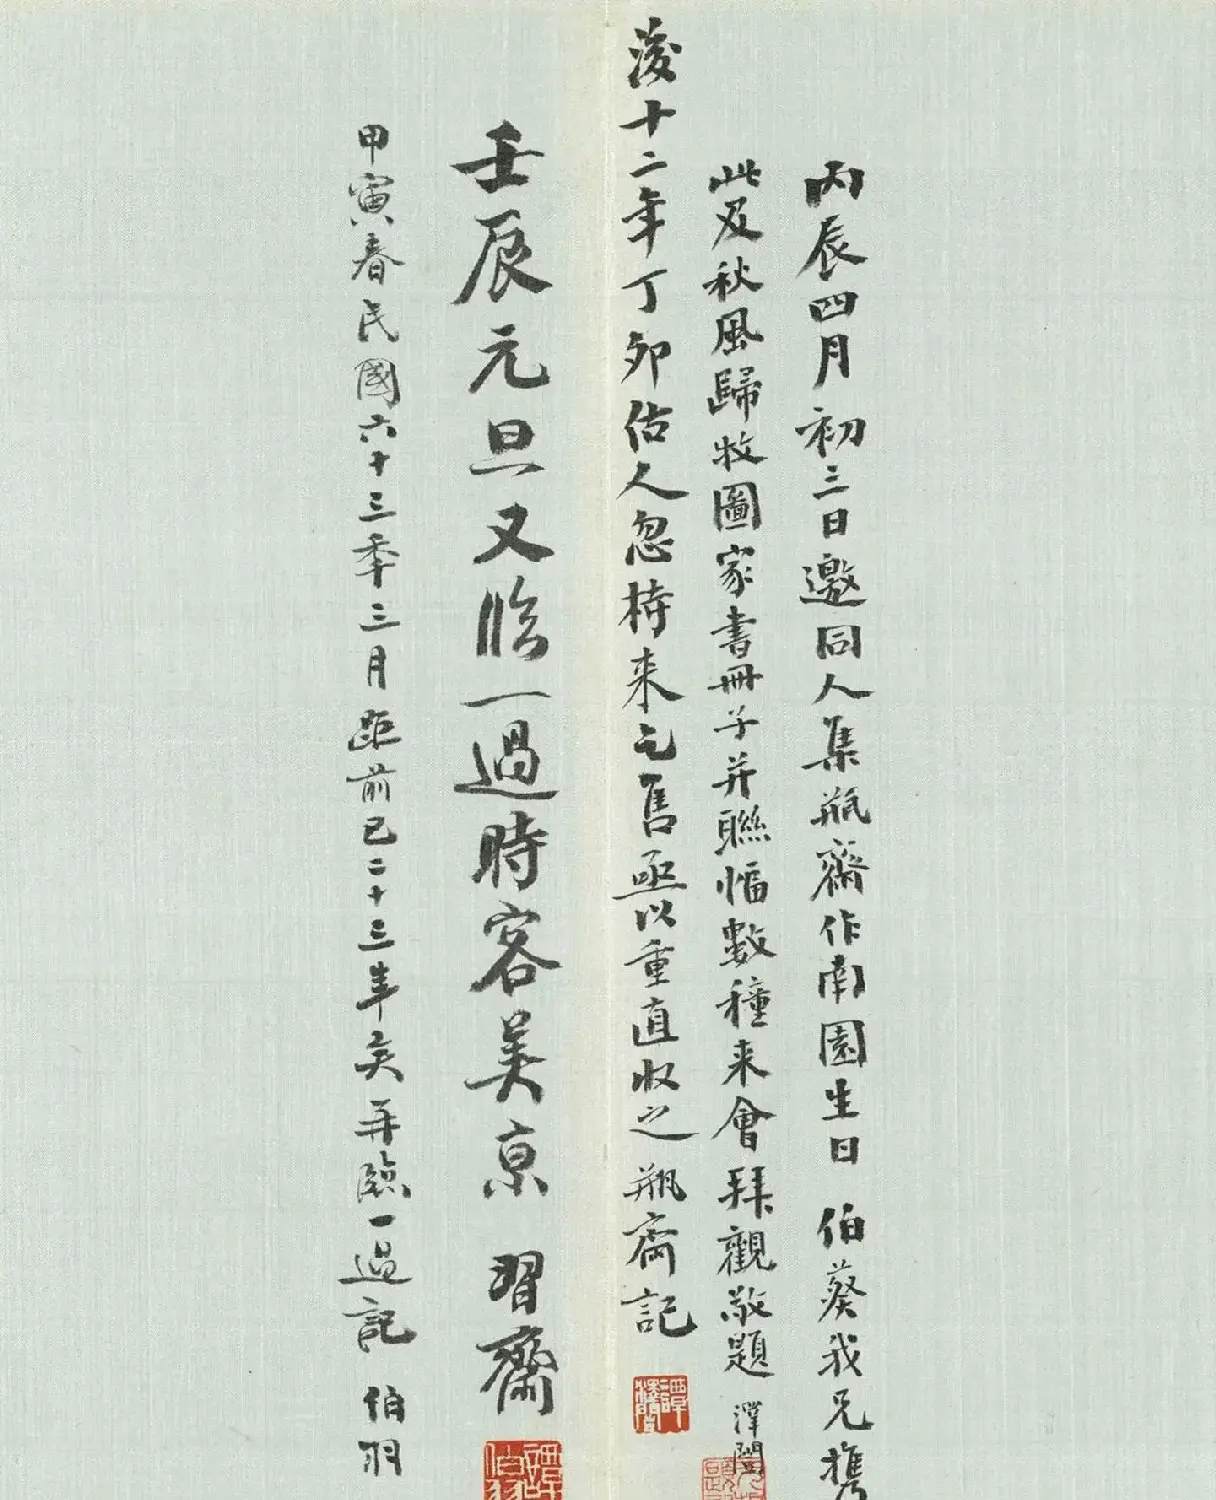 丙辰四月初三日邀同人集瓶齋作南園生日伯葵我兄攜
此及秋風歸牧圖家書冊子并聯幅數種來會拜觀敬題 澤闓
後十二年丁卯估人忽持來乞售亟以重直收之瓶齋記
壬辰元旦又臨一過時客美京 習齋
甲寅春民國六十三年三月距前已二十三年矣再臨一過記 伯羽